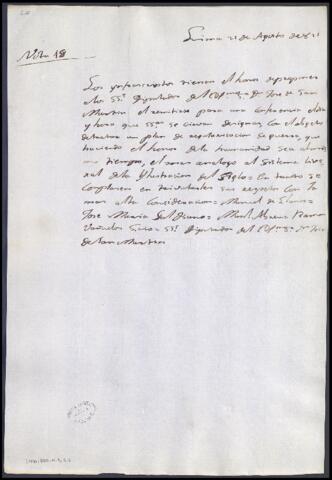 Lima 21 de Agosto de 821
Nota 18
Los infrascriptos tienen el honor de proponer
a los SS.s Diputados del Exmo. Sr. Dn. Jose de San
Martin el reunirse para una conferencia el dia
y hora que SSas. se sirvan designar, con el objeto
de tratar un plan de regularizacion de guerra, que
haciendo el honor de la humanidad sea al mis-
mo tiempo, el mas analogo al sistema libe-
ral de la Ilustracion del Siglo = Con tanto se
complacen en reiterarles sus respetos con la
mas alta consideracion = Manuel de Llano =
Jose Maria Galdiano = Manl. Abreu =
SS.s Diputados del Exmo. Sr. Dn. Jose
de San Martin